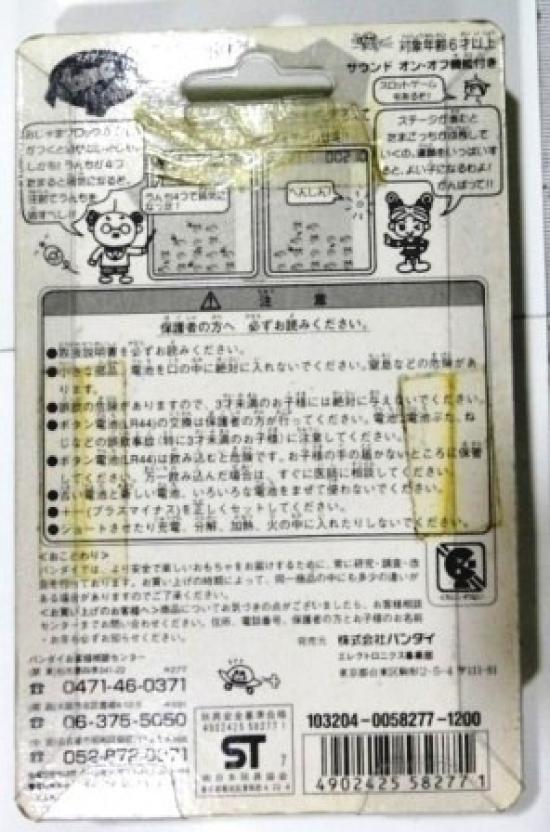 対象年齢6才以上
サウンド オン・オフ機能付き
スロットゲーム
もあるぞ!
おじゃまブロック
がつくと
しかも!うんちが4つ
たまると病気になるぞ。
注射でうんちを
消すべし!!
うんち4つで病気に
なっぽ!
00210
へんしん!
ステージが進むと
たまごっちが成長して
いくの。運動をいっぱいす
ると、よい子になるわよ!
がんばって!!
注 意
保護者の方へ 必ずお読みください。
●取扱説明書を必ずお読みください。
●小さな部品、電池を口の中に絶対に入れないでください。窒息などの危険があ
ります。
●誤飲の危険がありますので、3才未満のお子様には絶対に与えないでください。
●ボタン電池(LR44)の交換は保護者の方が行ってください。電池、電池ぶた、ね
じなどの誤飲事故(特に3才未満のお子様)に注意してください。
●ボタン電池(LR44)は飲み込むと危険です。お子様の手の届かないところに保管
してください。万一飲み込んだ場合は、すぐに医師に相談してください。
●古い電池と新しい電池、いろいろな電池をまぜて使わないでください。
●+−(プラスマイナス)を正しくセットしてください。
●ショートさせたり充電、分解、加熱、火の中に入れたりしないでください。
<おことわり>
バンダイでは、より安全で楽しいおもちゃをお届けするために、常に研究・調査・改
良を行っております。お買い上げの時期によって、同一商品の中にも多少の違いが
ある場合がありますのでご了承ください。
<お買い上げのお客様へ>商品についてお気づきの点がございましたら、お客様相談
センターまでお問い合わせください。住所、電話番号、保護者の方とお子様のお名前
・お年も必ずお知らせください。
バンダイお客様相談センター
☎ 0471-46-0371
☎ 06-375-5050
☎ 052-872-0371
発売元 株式会社バンダイ
エレクトロニクス事業部
東京都台東区駒形2-5-4 〒111-81
玩具安全基準合格
4902425 582771
ST
7
社日本玩具協会
103204-0058277-1200
4902425 582771